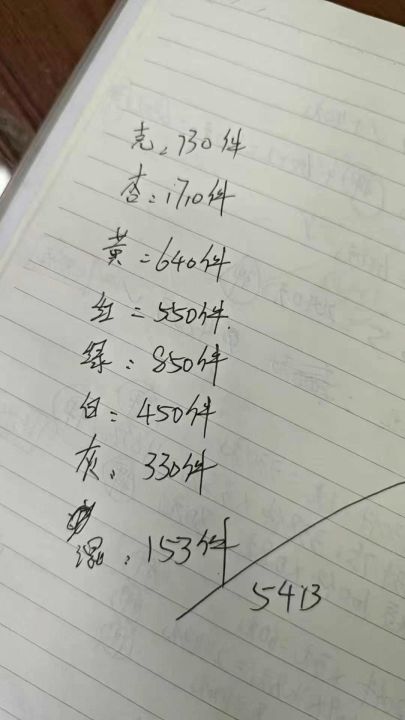 克：730件
杏：1710件
黄：640件
红：550件
绿：850件
白：450件
灰：330件
：153件
5413